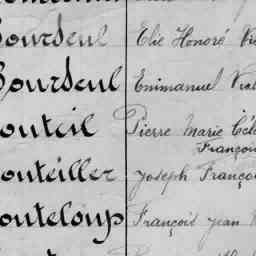 Bourdeul Elie Honoré
Bourdeul Emmanuel
outeil Pierre Marie
François
outeiller Joseph Franço
outeloup François Jean